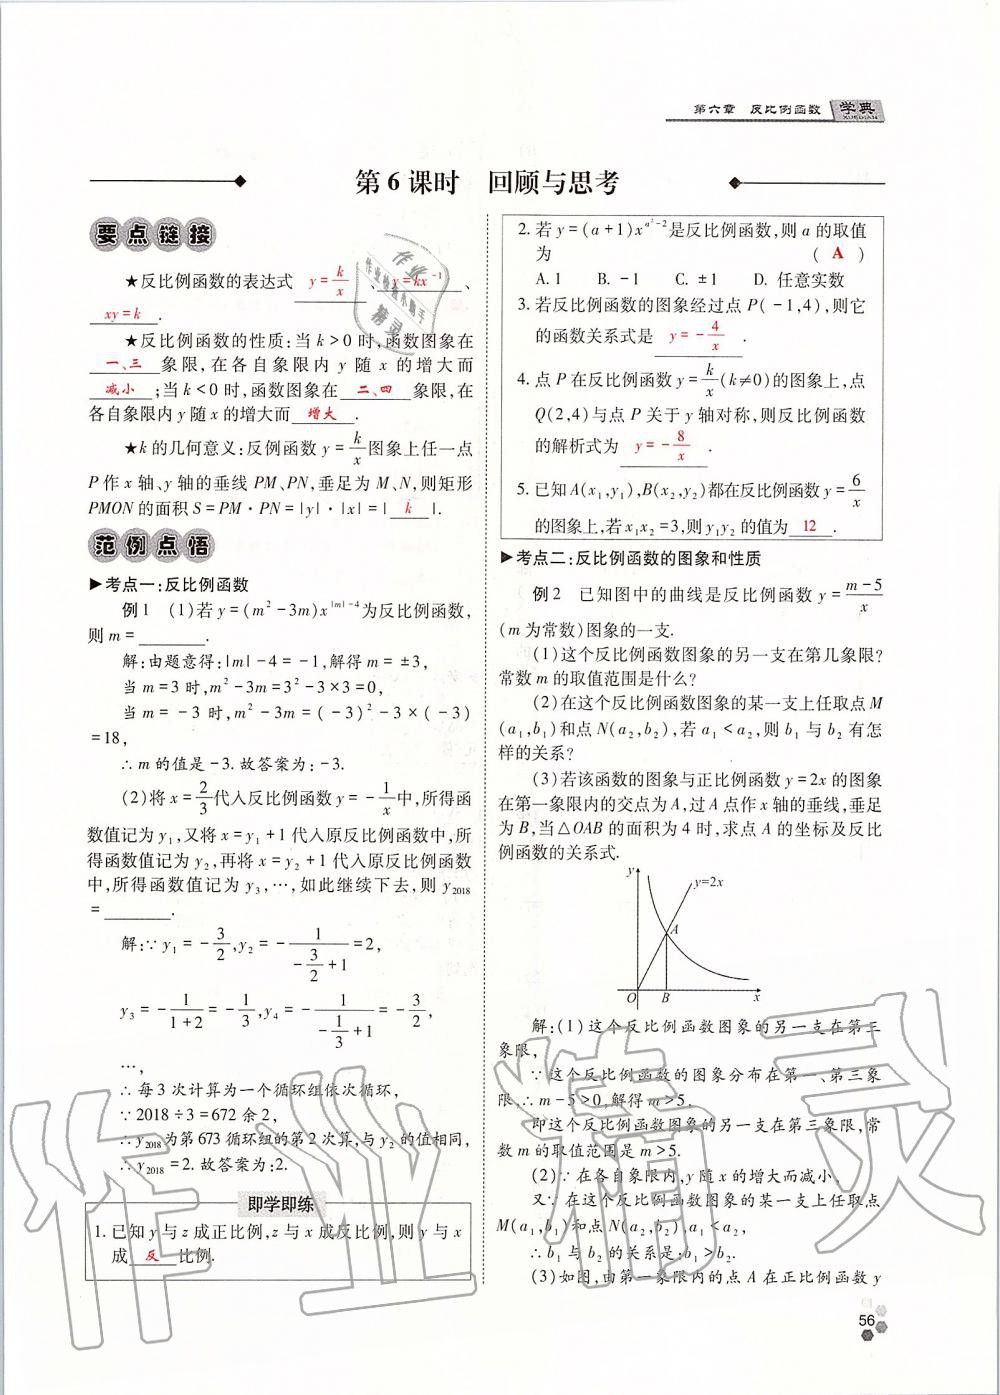 第六章 反比例函数 学典
XUEDIAN
第 6 课时 回顾与思考
要点链接
★反比例函数的表达式 y=k/x 、 y=kx⁻¹ 、
xy=k .
★反比例函数的性质:当 k>0 时,函数图象在
一、三 象限,在各自象限内 y 随 x 的增大而
减小 ;当 k<0 时,函数图象在 二、四 象限,在
各自象限内 y 随 x 的增大而 增大 .
★k 的几何意义:反例函数 y=k/x图象上任一点
P 作 x 轴、y 轴的垂线 PM、PN,垂足为 M、N,则矩形
PMON 的面积 S=PM·PN=|y|·|x|=| k |.
范例点悟
▶考点一:反比例函数
例 1 (1)若 y=(m²-3m)x^(|m|-4)为反比例函数,
则 m=________.
解:由题意得:|m|-4=-1,解得 m=±3,
当 m=3 时,m²-3m=3²-3×3=0,
当 m=-3 时,m²-3m=(-3)²-3×(-3)
=18,
∴m 的值是-3.故答案为:-3.
(2)将 x=2/3代入反比例函数 y=-1/x中,所得函
数值记为 y₁,又将 x=y₁+1 代入原反比例函数中,所
得函数值记为 y₂,再将 x=y₂+1 代入反比例函数
中,所得函数值记为 y₃,…,如此继续下去,则 y₂₀₁₈
=________.
解:∵y₁=-3/2,y₂=-1/(-3/2+1)=2,
y₃=-1/(1+2)=-1/3,y₄=-1/(-1/3+1)=-3/2,
…,
∴每 3 次计算为一个循环组依次循环,
∵2018÷3=672 余 2,
∴y₂₀₁₈为第 673 循环组的第 2 次算,与 y₂ 的值相同,
∴y₂₀₁₈=2.故答案为:2.
即学即练
1. 已知 y 与 z 成正比例,z 与 x 成反比例,则 y 与 x
成 反 比例.
2. 若 y=(a+1)x^(a²-2)是反比例函数,则 a 的取值
为 ( A )
A. 1 B. -1 C. ±1 D. 任意实数
3. 若反比例函数的图象经过点 P(-1,4),则它
的函数关系式是 y=-4/x .
4. 点 P 在反比例函数 y=k/x(k≠0)的图象上,点
Q(2,4)与点 P 关于 y 轴对称,则反比例函数
的解析式为 y=-8/x .
5. 已知 A(x₁,y₁),B(x₂,y₂)都在反比例函数 y=6/x
的图象上,若 x₁x₂=3,则 y₁y₂ 的值为 12 .
▶考点二:反比例函数的图象和性质
例 2 已知图中的曲线是反比例函数 y=(m-5)/x
(m 为常数)图象的一支.
(1)这个反比例函数图象的另一支在第几象限?
常数 m 的取值范围是什么?
(2)在这个反比例函数图象的某一支上任取点 M
(a₁,b₁)和点 N(a₂,b₂),若 a₁<a₂,则 b₁ 与 b₂ 有怎
样的关系?
(3)若该函数的图象与正比例函数 y=2x 的图象
在第一象限内的交点为 A,过 A 点作 x 轴的垂线,垂足
为 B,当△OAB 的面积为 4 时,求点 A 的坐标及反比
例函数的关系式.
y
y=2x
A
O B x
解:(1)这个反比例函数图象的另一支在第三
象限,
∵这个反比例函数的图象分布在第一、第三象
限,∴m-5>0,解得 m>5.
即这个反比例函数图象的另一支在第三象限,常
数 m 的取值范围是 m>5.
(2)∵在各自象限内,y 随 x 的增大而减小.
又∵在这个反比例函数图象的某一支上任取点
M(a₁,b₁)和点 N(a₂,b₂),a₁<a₂,
∴b₁ 与 b₂ 的关系是:b₁>b₂.
(3)如图,由第一象限内的点 A 在正比例函数 y
56
作业精灵
作业
作业检查小助手
精灵